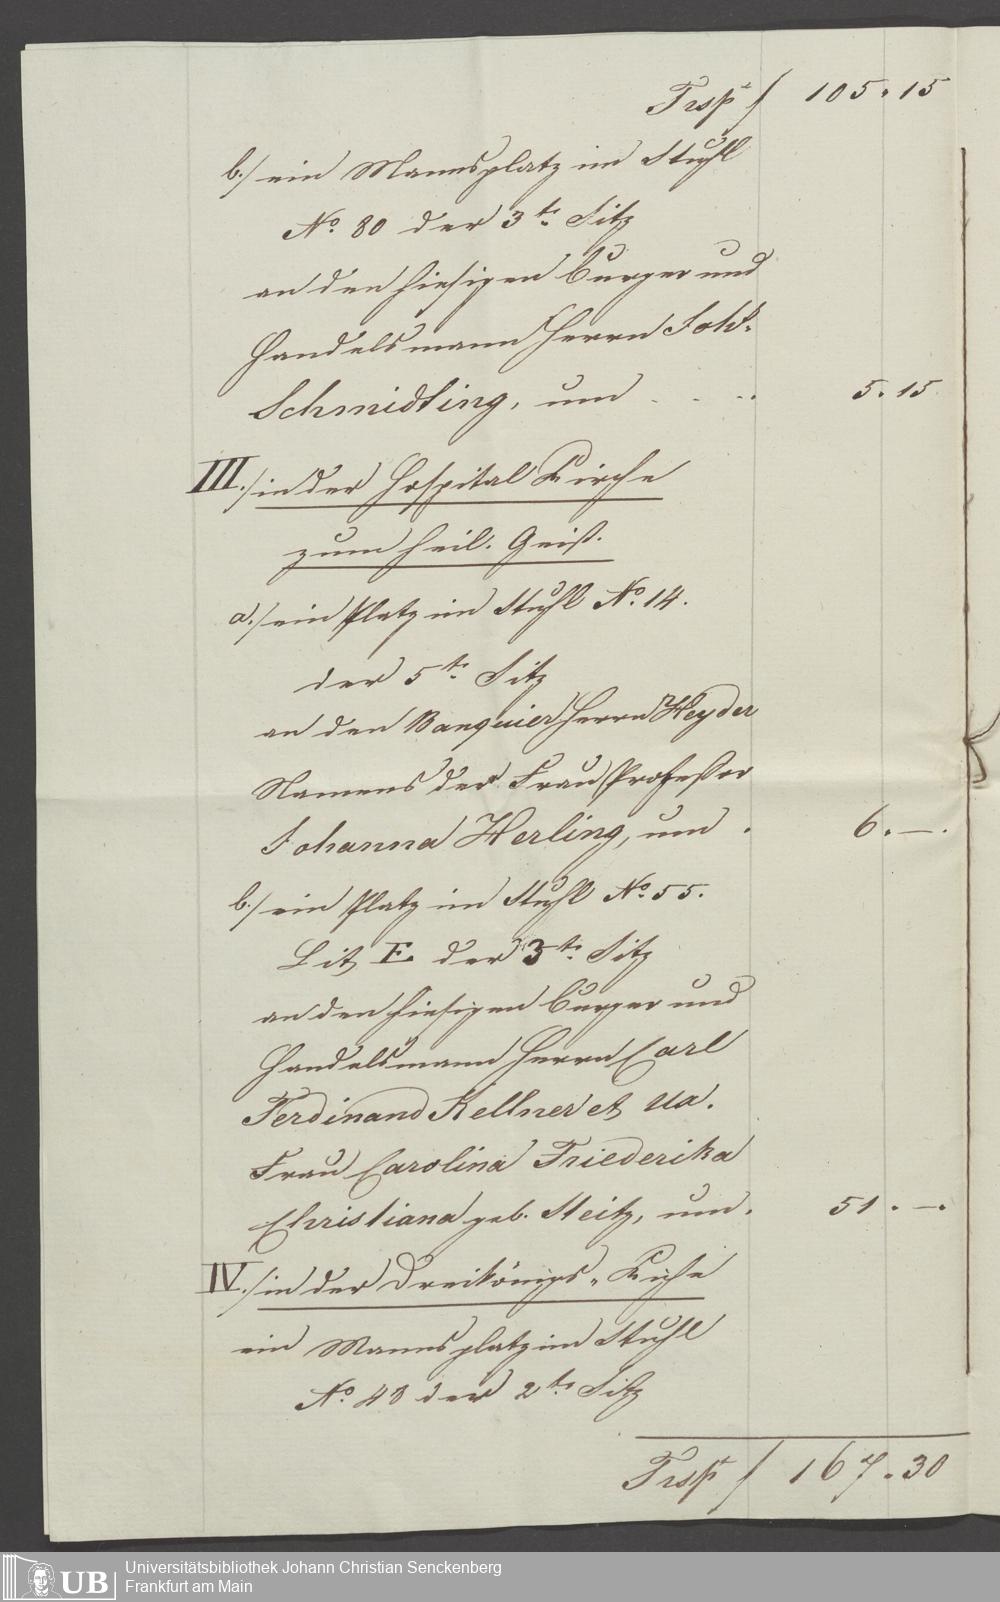 Trsp f 105. 15
b./ ein Mannsplatz im Stuhl
No. 80 der 3te Sitz
an den hiesigen Burger und
Handelsmann Herrn Joh.
Schmidting, um . . . 5. 15
III./ in der Hospital Kirche
zum heil. Geist.
a./ ein Platz im Stuhl No. 14.
der 5te Sitz
an den Banquier Herrn Heyder
Namens der Frau Profeßor
Johanna Herling, um . 6. —.
b./ ein Platz im Stuhl No. 55.
Lit E der 3te Sitz
an den hiesigen Burger und
Handelsmann Herrn Carl
Ferdinand Kellner et Ua.
Frau Carolina Friederika
Christiana geb. Steitz, um . 51. —.
IV./ in der Dreikönigs-Kirche
ein Mannsplatz im Stuhl
No. 48 der 2te Sitz
Trsp f 167. 30
UB
Universitätsbibliothek Johann Christian Senckenberg
Frankfurt am Main